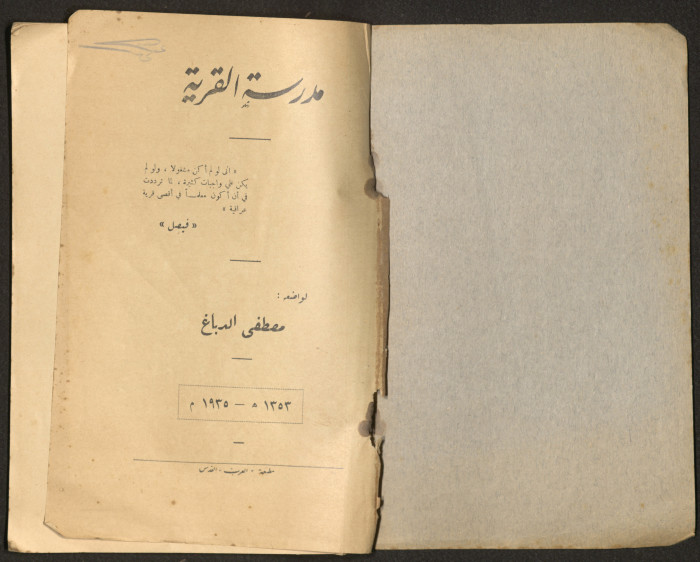 مدرسة القرية
« انى لو لم أكن مشغولا ، ولو لم
يكن علي واجبات كثيرة ، لما ترددت
في أن أكون معلماً في أقصى قرية
عراقية »
« فيصل »
لواضعه :
مصطفى الدباغ
١٣٥٣ ه – ١٩٣٥ م
مطبعة - العرب - القدس